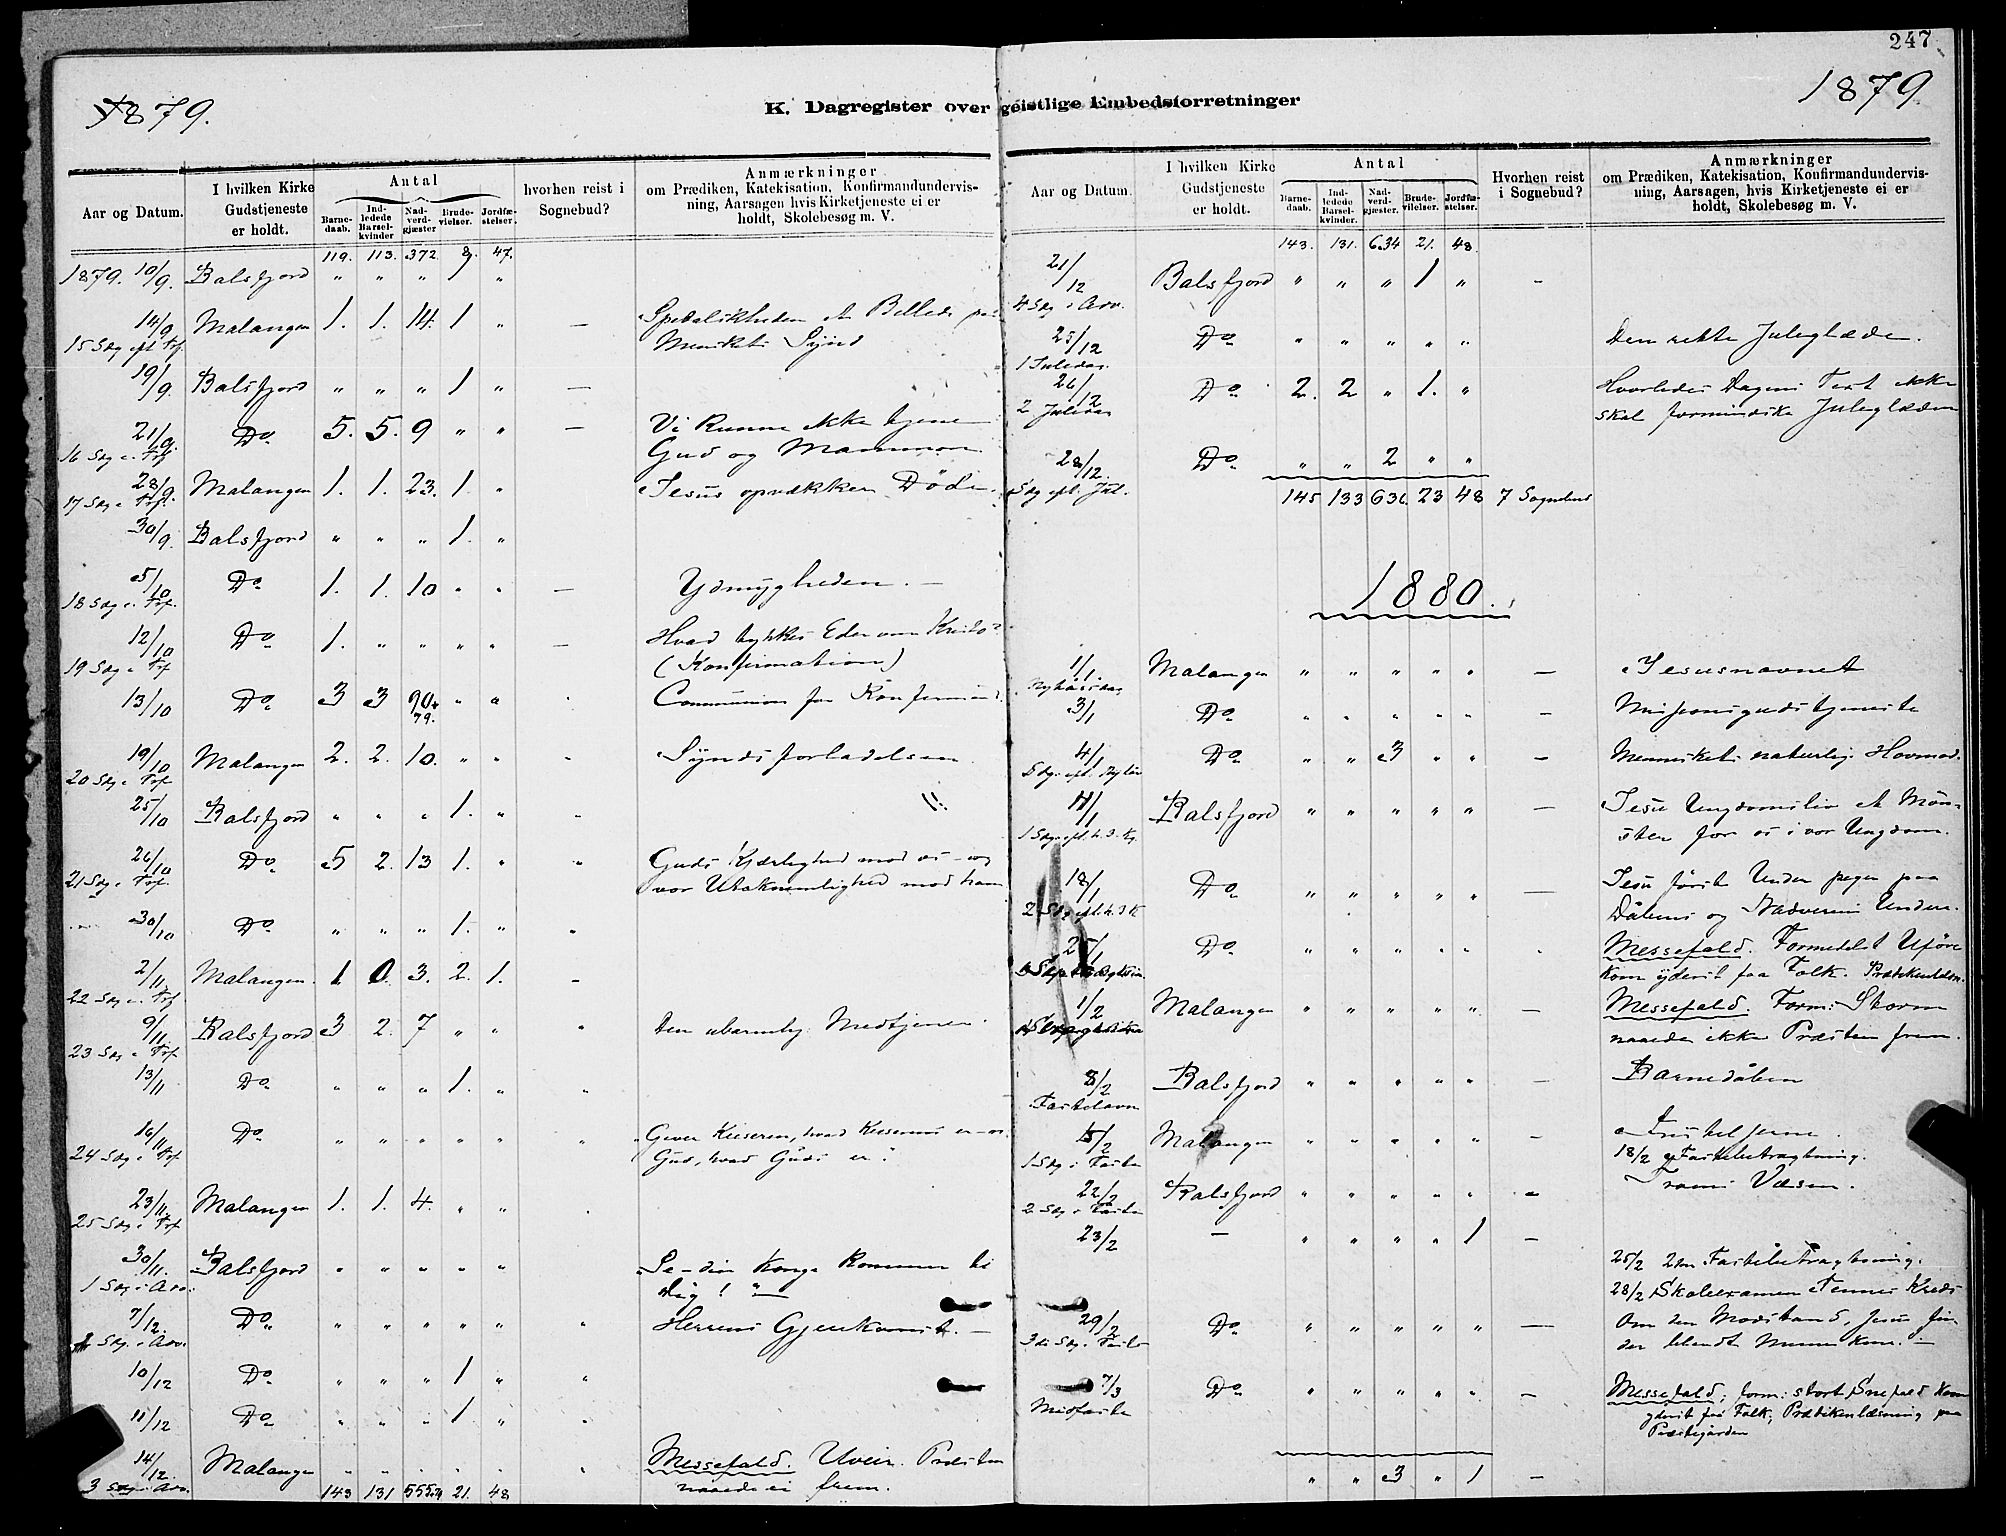 247
1879.
K. Dagregister over geistlige Embedsforretninger
1879
Aar og Datum.
I hvilken Kirke Gudstjeneste er holdt.
Antal
Barnedaab.
Indledede Barselkvinder
Nadverdgjæster
Brudevielser.
Jordfæstelser.
hvorhen reist i Sognebud?
Anmærkninger
om Prædiken, Katekisation, Konfirmandundervisning, Aarsagen hvis Kirketjeneste ei er holdt, Skolebesøg m. V.
119. 113. 372 9. 47.
1879. 10/9. Balsfjord " " " 1 "
14/9 Malangen 1. 1. 14. 1 " — Spedalskheden et Billede på
15 Sdg eft Trf. Menskets Synd
19/9. Balsfjord " " " 1 " —
21/9. Do 5. 5. 9 " " — Vi kunne ikke tjene
16 Sdg e. Trf Gud og Mammon
28/9. Malangen 1. 1. 23. 1. " Jesus opvækker Døde.
17 Sdg e Trf.
30/9. Balsfjord " " " 1. "
5/10 Do 1. 1. 10 " " — Ydmygheden. —
18 Sdg e. Trf.
12/10 Do 1. " " " " — Hvad tykkes Eder om Kristo?
19 Sdg e Trf (Konfirmation)
13/10 Do 3 3 90+ " " Communion for Konfirmand.
79.
19/10 Malangen 2. 2. 10. " " Syndsforladelsen
20 Sdg e Trf
25/10 Balsfjord " " " 1. "
26/10 Do 5 2. 13 1. " " Guds Kjærlighed mod os - og
21 Sdg e Trf. vor Utaknemlighed mod ham
30/10 Do " " " 1. " "
2/11 Malangen. 1 0. 3. 2. 1. —
22 Sdg e. Trf
9/11. Balsfjord 3 2. 7 " " " Den ubarmhj. Medtjener.
23 Sdg e Trf
13/11 Do " " " 1. " "
16/11 Do " " " " " " "Giver Keiseren, hvad Keiserens er - og
24 Sdg e Trf Gud, hvad Guds er".
23/11. Malangen 1. 1. 4. " "
25 Sdg e Trf
30/11. Balsfjord " " " " " "Se - din Konge kommer til
1 Sdg i Adv. dig! " —
7/12. Do " " " " " " Herrens Gjenkomst. —
Sdg. i Adv.
10/12 Do " " " 1 " "
11/12 Do " " " 1 " "
14/12. Malangen " " " " " " Messefald. Uveir. Præsten
3 Sdg i Adv. naaede ei frem.
143 131 21. 48
Aar og Datum.
I hvilken Kirke Gudstjeneste er holdt.
Antal
Barnedaab.
Indledede Barselkvinder.
Nadverdgjæster.
Brudevielser.
Jordfæstelser.
Hvorhen reist i Sognebud?
Anmærkninger
om Prædiken, Katekisation, Konfirmandundervisning, Aarsagen, hvis Kirketjeneste ei er holdt, Skolebesøg m. V.
143. 131. 634 21. 48
21/12 Balsfjord " " " 1 " -
4 Sdg i Adv.
25/12 Do " " " " " Den rette Juleglæde.
1 Juledag
26/12 Do 2. 2 " 1. " Hvorledes Dagens Text ikke
2 Juledag skal formindske Juleglæden
28/12. Do " " 2 " "
Sdg eft. Jul. 145 133 636. 23 48 7 Sognebud
1880.
1/1. Malangen " " " " " — Jesusnavnet
Nytårsdag
3/1 Do " " " " " — Missionsgudstjeneste
4/1 Do " " 3 " " — Menneskets naturlig. Hovmod.
Sdg. eft. Nytår
11/1 Balsfjord " " " " " — Jesu Ungdomsliv et Møn-
1 Sdg. eft. h. 3. Kg. ster for os i vor Ungdom.
18/1 Do " " " " " — Jesu første Under peger paa
2 Sdg eft. h. 3 K Dåbens og Nadverens Undere.
25/1 Do " " " " " Messefald. Formedelst Uføre
kom yderst faa Folk. Prædikenlæsn.
1/2 Malangen " " " " " — Messefald. Form. Storm
naaede ikke Præsten frem.
8/2 Balsfjord " " " " " — Barnedåben
Fastelavn
15/2 Malangen " " " " " —
1 Sdg i Faste 18/2 Fastebetragtning.
22/2 Balsfjord " " " " " — Troens Væsen.
2. Sdg i Faste
23/2 — " " " " 1 —
25/2 2den Fastebetragtning.
28/2 Skoleexamen i Tennes Kreds
29/2 Do " " " " " — Om den Modstand, Jesus fin-
3die Sdg. i Faste der blandt Menneskene. —
7/3 Do " " " " " — Messefald; form. stort Snefald kom
Midfaste yderst faa Folk; Prædikenlæsning paa
Præstegården
" " 3 " 1 —